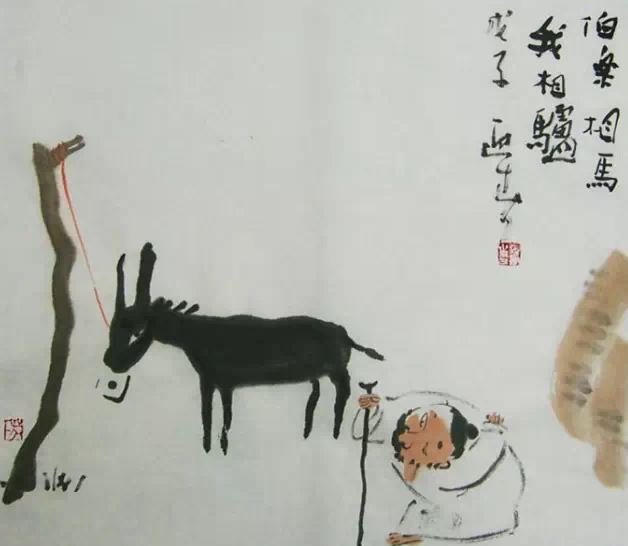 伯樂相馬
我相驢
戊子